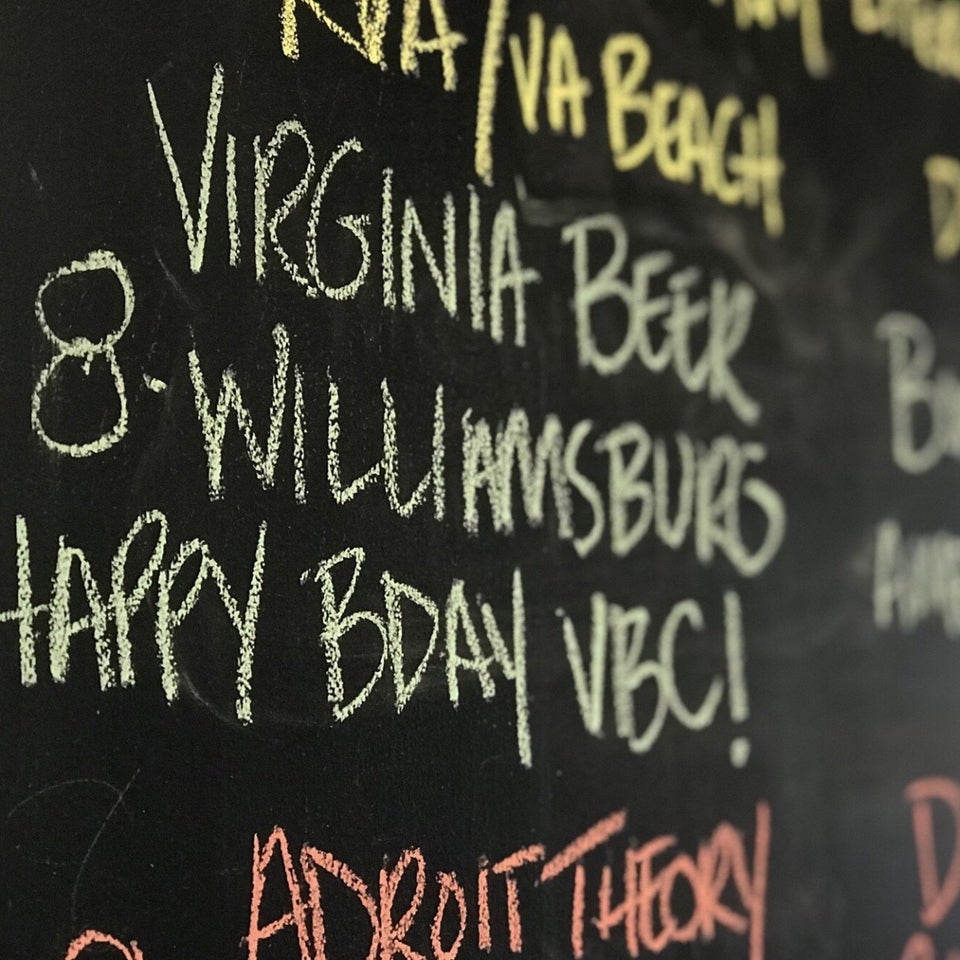 RVA/VA BEACH
VIRGINIA BEER
8. WILLIAMSBURG
HAPPY BDAY VBC!
ADROIT THEORY